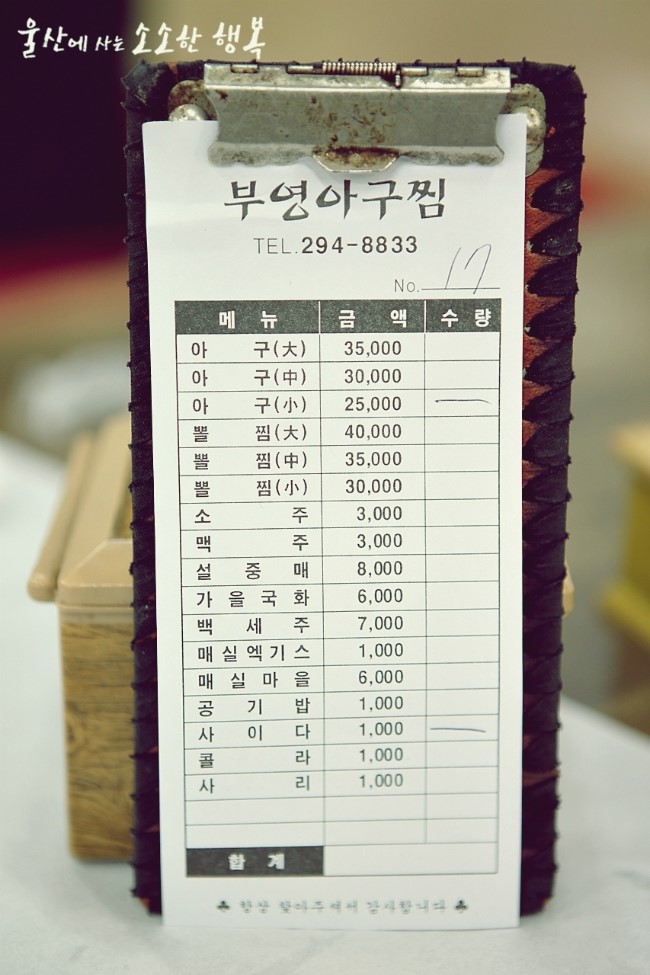 울산에 사는 소소한 행복
부영아구찜
TEL.294-8833
No. 17
메 뉴 금 액 수 량
아 구(大) 35,000
아 구(中) 30,000
아 구(小) 25,000 一
뽈 찜(大) 40,000
뽈 찜(中) 35,000
뽈 찜(小) 30,000
소 주 3,000
맥 주 3,000
설 중 매 8,000
가 을 국 화 6,000
백 세 주 7,000
매 실 엑 기 스 1,000
매 실 마 을 6,000
공 기 밥 1,000
사 이 다 1,000 一
콜 라 1,000
사 리 1,000
합 계
♣ 항상 찾아주셔서 감사합니다 ♣